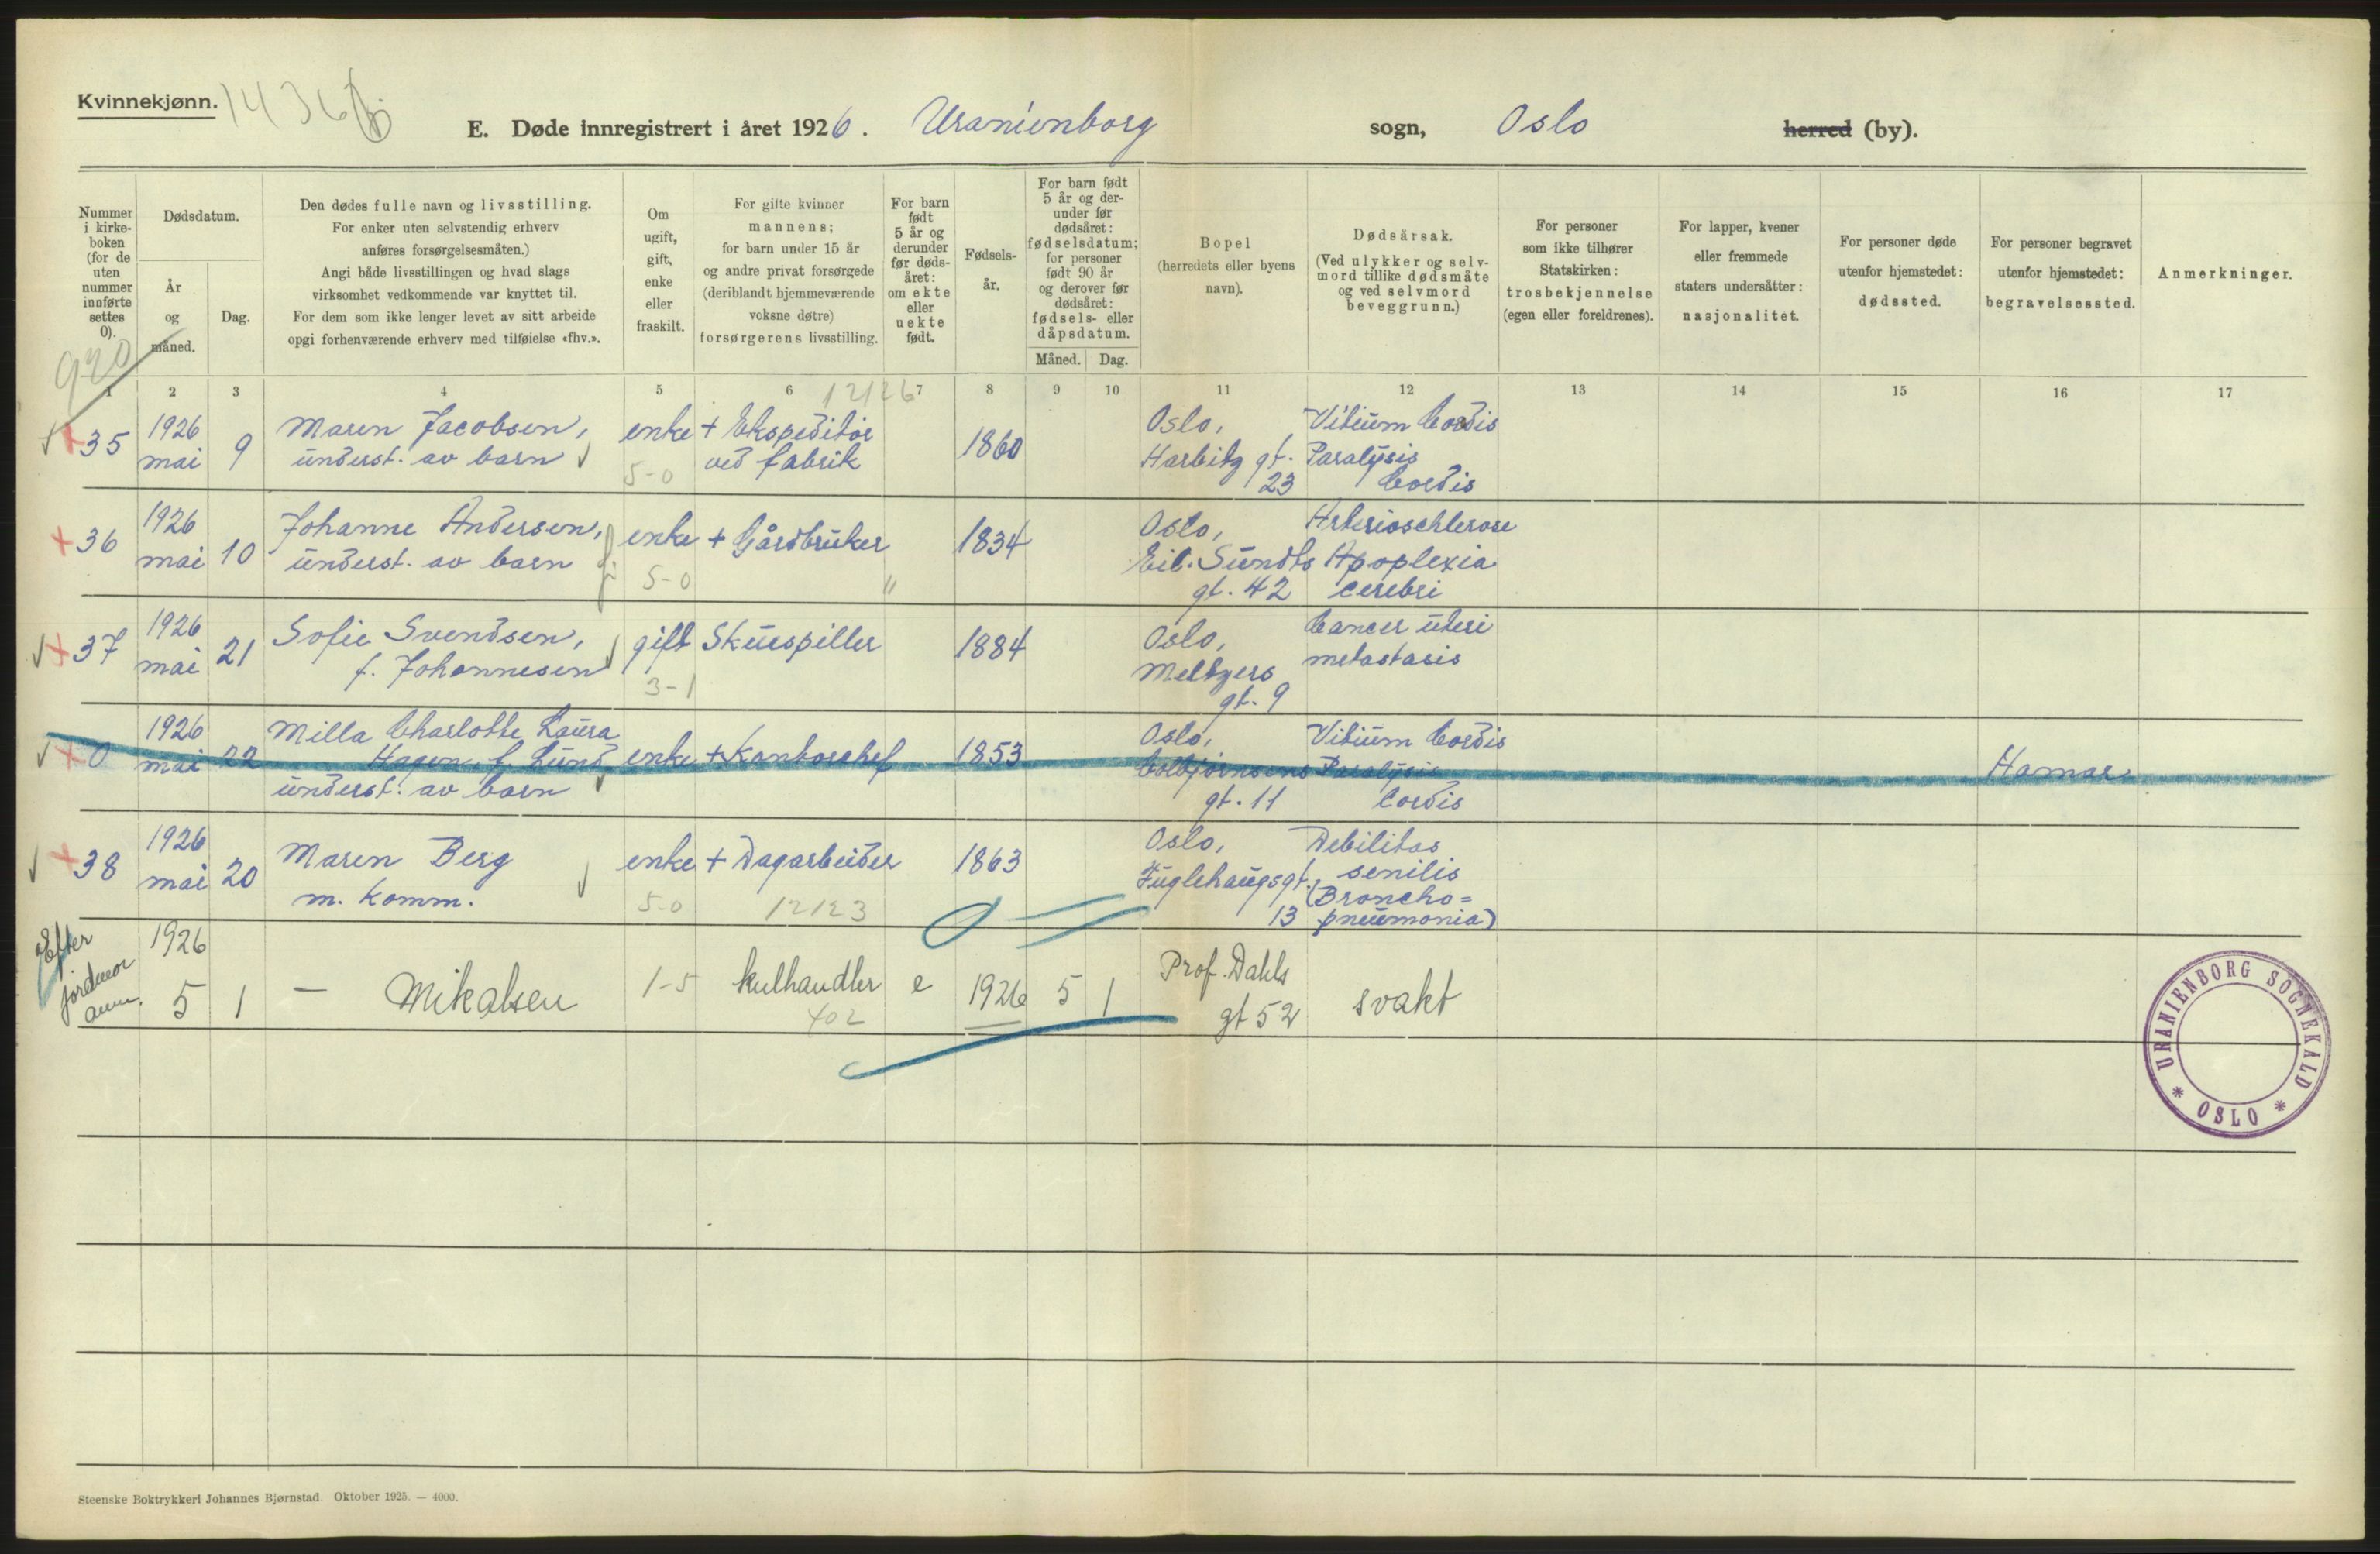 Kvinnekjønn.
E. Døde innregistrert i året 1926. Uranienborg sogn, Oslo herred (by).
Nummer i kirke-boken (for de uten nummer innførte settes 0).
Dødsdatum.
År og måned.
Dag.
Den dødes fulle navn og livsstilling.
For enker uten selvstendig erhverv
anføres forsørgelsesmåten.)
Angi både livsstillingen og hvad slags
virksomhet vedkommende var knyttet til.
For dem som ikke lenger levet av sitt arbeide
opgi forhenværende erhverv med tilføielse «fhv.».
Om ugift, gift, enke eller fraskilt.
For gifte kvinner
mannens;
for barn under 15 år
og andre privat forsørgede
(deriblandt hjemmeværende
voksne døtre)
forsørgerens livsstilling.
For barn født 5 år og derunder før døds-året: om ekte eller uekte født.
Fødsels-år.
For barn født
5 år og der-
under før
dødsåret:
fødselsdatum;
for personer
født 90 år
og derover før
dødsåret:
fødsels- eller
dåpsdatum.
Måned. Dag.
Bopel
(herredets eller byens
navn).
Dødsårsak.
(Ved ulykker og selv-
mord tillike dødsmåte
og ved selvmord
beveggrunn.)
For personer
som ikke tilhører
Statskirken:
trosbekjennelse
(egen eller foreldrenes).
For lapper, kvener
eller fremmede
staters undersåtter:
nasjonalitet.
For personer døde
utenfor hjemstedet:
dødssted.
For personer begravet
utenfor hjemstedet:
begravelsessted.
Anmerkninger.
920
1 2 3 4 5 6 7 8 9 10 11 12 13 14 15 16 17
12126
+35 1926 mai 9 Maren Jacobsen, underst. av barn enke + Ekspeditør ved fabrik 1860 Oslo, Harbitz gt. 23 Vitium Cordis Paralysis Cordis
5-0
+36 1926 mai 10 Johanne Andersen, underst. av barn enke + Gårdbruker 1834 Oslo, Eil. Sundts gt. 42 Arterioschlerose Apoplexia cerebri
5-0 "
+37 1926 mai 21 Sofie Svendsen, f. Johannesen gift Skuespiller 1884 Oslo, Meltzers gt. 9 Cancer uteri metastasis
3-1
+0 1926 mai 22 Milla Charlotte Laura Hagen, f. Lund, underst. av barn enke + Kontorchef 1853 Oslo, Colbjørnsens gt. 11 Vitium Cordis Paralysis Cordis Hamar
+38 1926 mai 20 Maren Berg m. komm. enke + Dagarbeider 1863 Oslo, Fuglehaugsgt. 13 Debilitas senilis (Broncho=pneumonia)
5-0 12123
Efter jordmor anm. 1926 5 1 — Mikalsen 1-5 kulhandler e 1926 5 1 Prof. Dahls gt 52 svakt
402
URANIENBORG SOGNEKALD * OSLO *
Steenske Boktrykkeri Johannes Bjørnstad. Oktober 1925. — 4000.